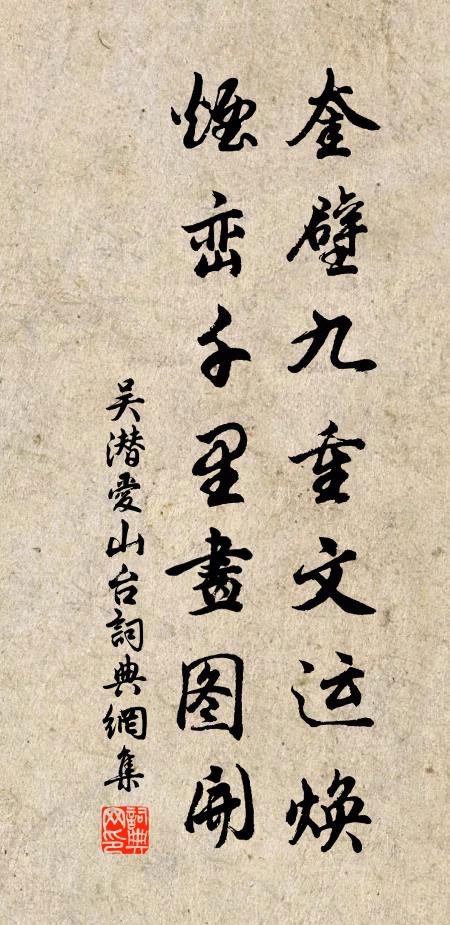 奎壁九重文运焕
煙峦千里畫图開
吴潜愛山台詞典網集
詞典网印